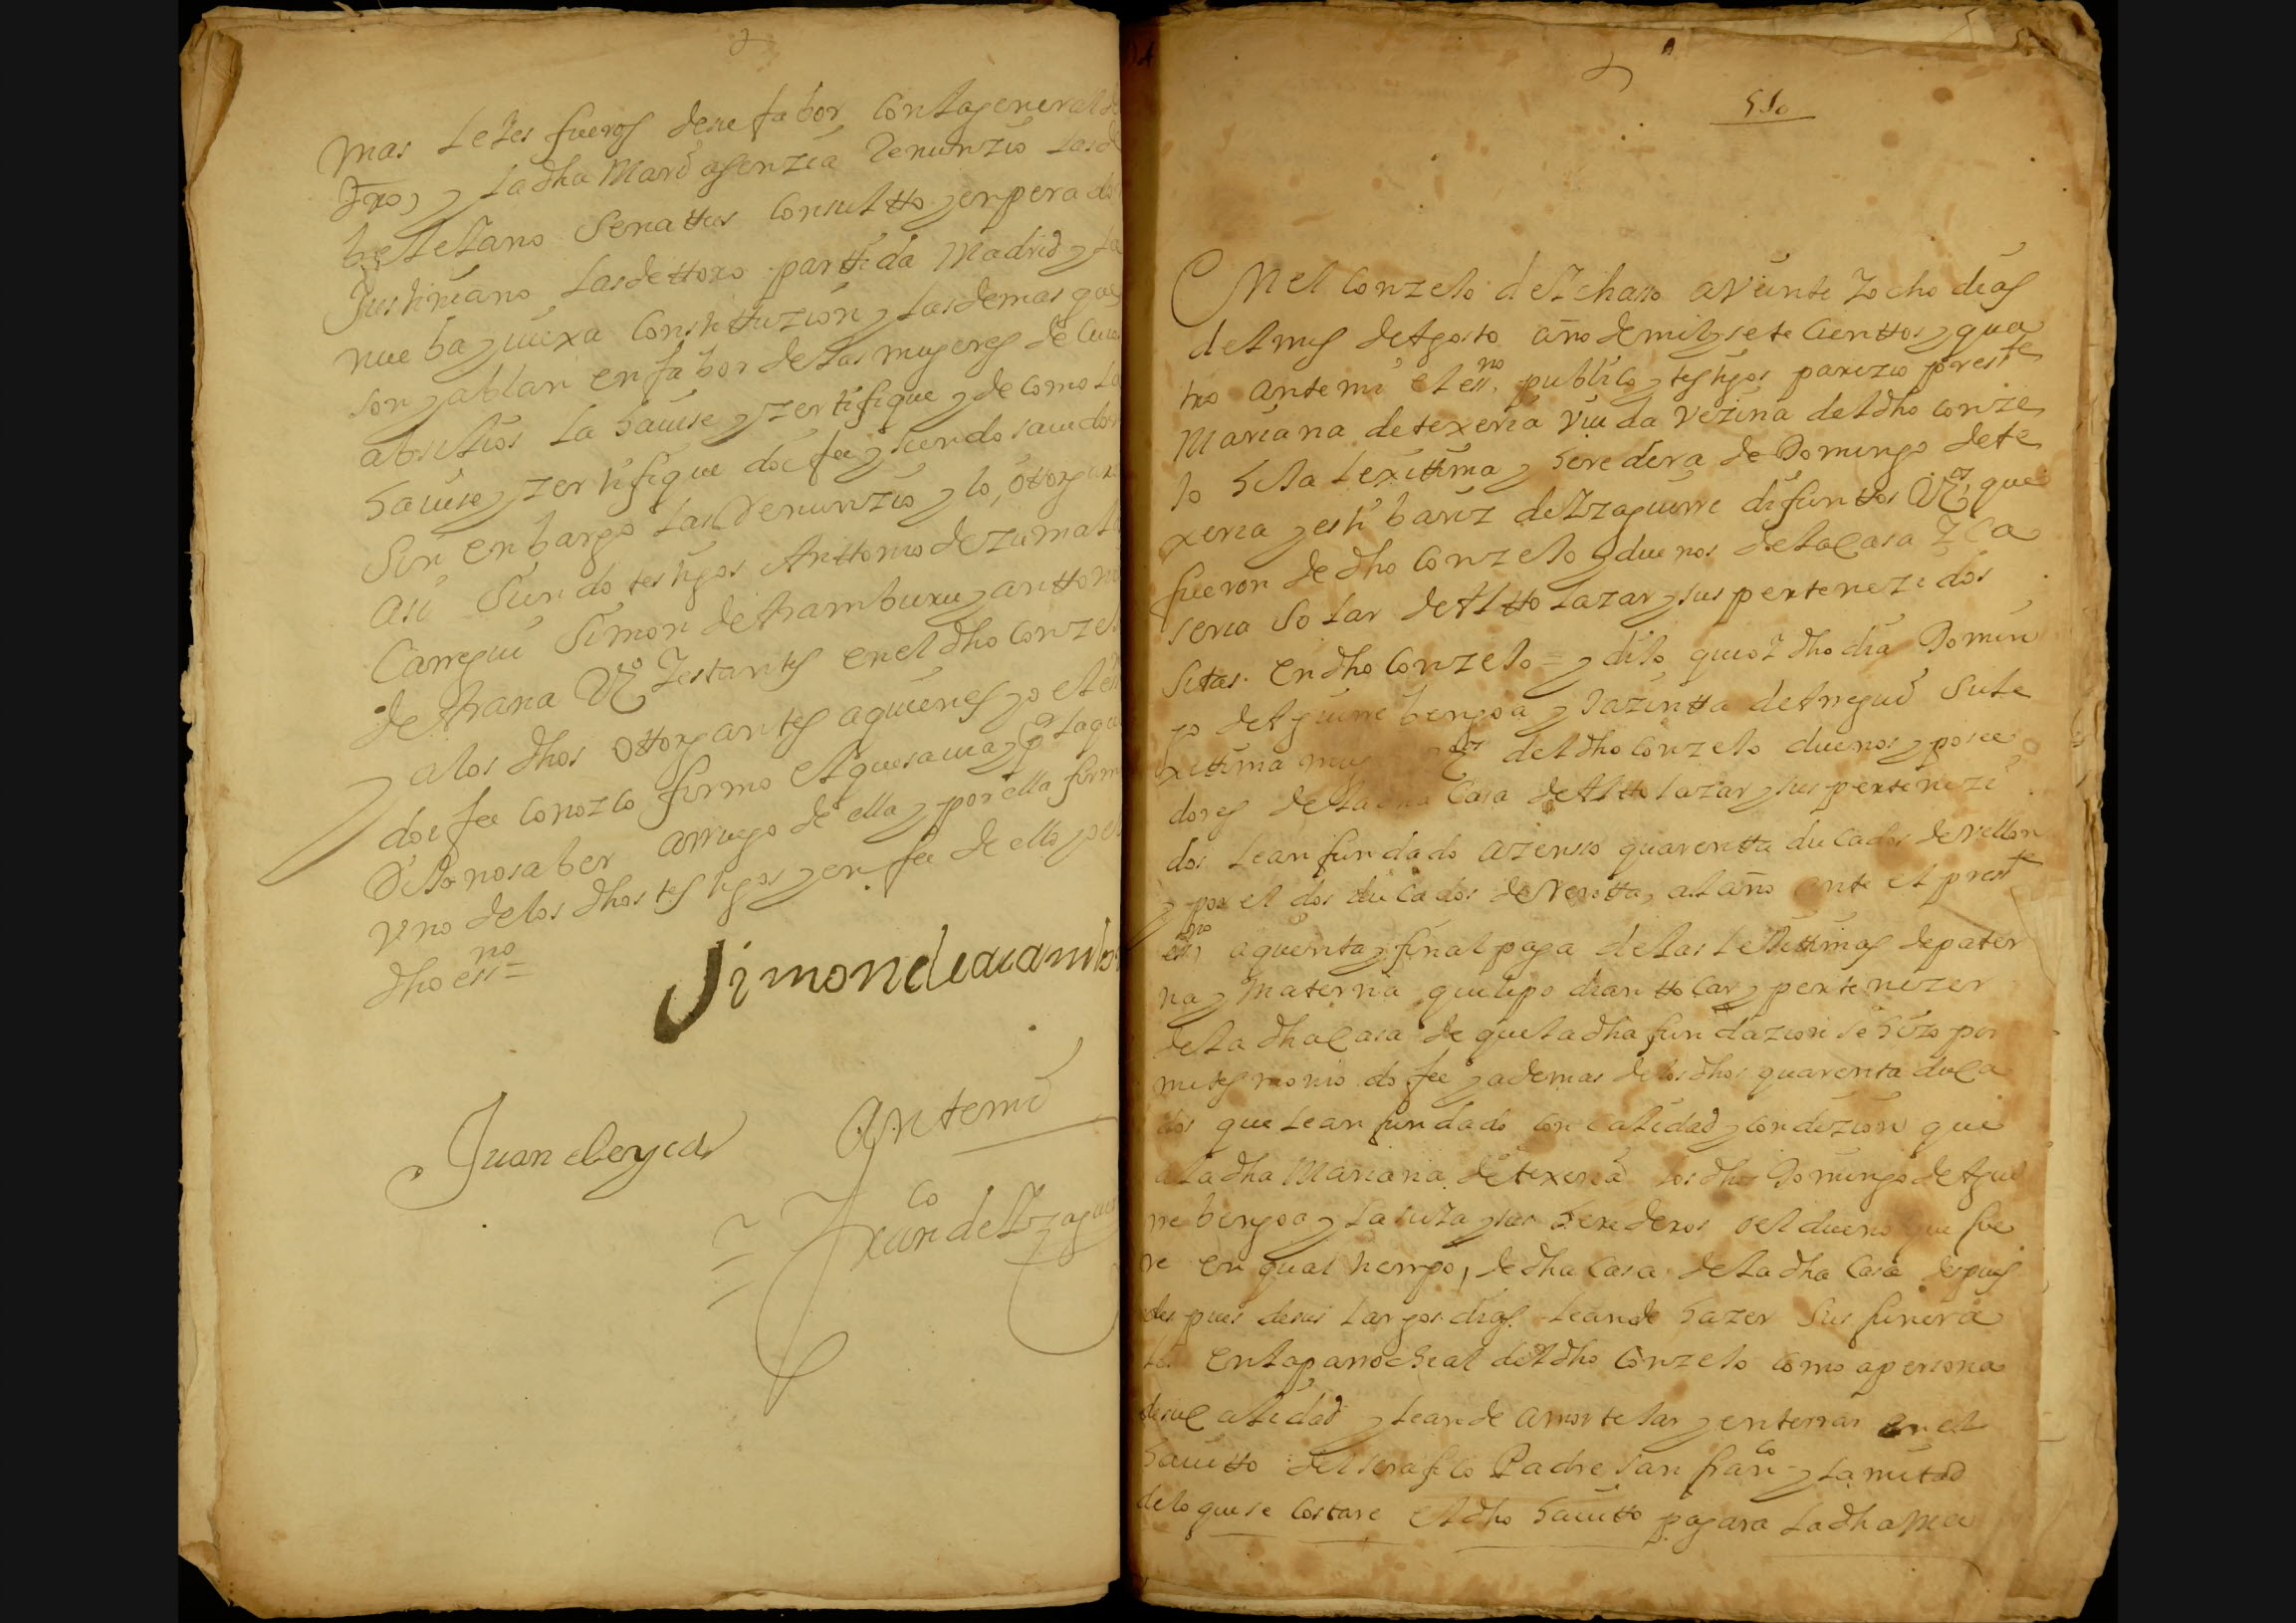 mas Leies fueros de su fabor Con la general de
dro, y la dha Mari asenzia Renunzio Las de
beleiano Senattus Consultto y enperador
Justiniano Las de ttoro parttida Madrid y la
nueba y viexa Constittuzion y las demas que
son y ablan en fabor de las mugeres de cuios
absilios La bauise y zertifique y de como La
bauise y zertifique doi fee y siendo sauidora
Sin enbargo Las Renunzio y lo ottorgaron
asi Siendo testigos Anttonio de zumala
Carregui Simon de Aramburu y anttonio
de Arana Vos. Y estantes en el dho Conzejo
y a los dhos ottorgantes a quienes yo el essno
doi fee Conozco firmo el que sauia y por la que
Dijo no saber a rruego de ella y por ella firmo
vno de los dhos testigos y en fee de ello yo el
dho essno =
Simon de aramburu
Juan de oyca
Ante mi
Franco de Yzaguirre
510
En el Conzejo de Ychaso a Veinte Y ocho dias
del mes de Agosto año de mil y sete Cienttos y qua
tro ante mi el essno. publico y testigos parezio preste
Mariana de texeria Viuda Vezina del dho conze
jo hija Lexittima y heredera de Domingo de te
xeria y estibariz de Yzaguirre difunttos Vos, que
fueron de dho Conzejo y duenos de la Casa Y Ca
seria Solar de Altto lazar y sus pertenezidos
Sitas en dho Conzejo = y dijo que oy dho dia Domin
go de Aguirre bengoa y Jazintta de Arregui Su le
xittima mug Vos del dho Conzejo duenos y posee
dores de la dha Casa de Altto lazar y sus pertenezi
dos Lean fundado a zenso quarentta ducados de vellon
y por el dos ducados de Rentta al año ante el prest
essno a quenta y final paga de las Lexittimas de pater
na y Materna que le podian ttocar y pertenezer
de la dha Casa de que la dha fundazion se hizo por
mi testimonio do fee y ademas de los dhos quarenta duca
dos que Lean fundado Con calidad y condizion que
a la dha Mariana de texeria los dhos Domingo de Agui
rre bengoa y la suia y sus herederos o el dueno que fue
re en qual tienpo, de dha Casa de la dha Casa despues
despues de sus Largos dias Lean de hazer Sus funera
les en la parrochial del dho Conzejo como a persona
de su Calidad y Lean de amortejar y enterrar en el
hauitto del serafico Padre San franco y la mitad
de lo que se Costare el dho hauitto pagara La dha Ma